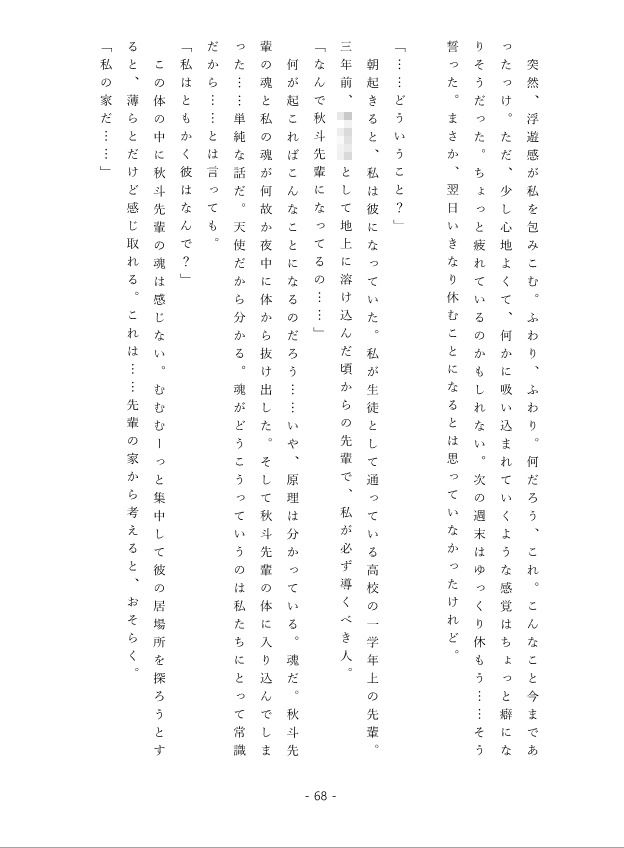 突然、浮遊感が私を包みこむ。ふわり、ふわり。何だろう、これ。こんなこと今まであ
ったっけ。ただ、少し心地よくて、何かに吸い込まれていくような感覚はちょっと癖にな
りそうだった。ちょっと疲れているのかもしれない。次の週末はゆっくり休もう……そう
誓った。まさか、翌日いきなり休むことになるとは思っていなかったけれど。
「……どういうこと？」
　朝起きると、私は彼になっていた。私が生徒として通っている高校の一学年上の先輩。
三年前、として地上に溶け込んだ頃からの先輩で、私が必ず導くべき人。
「なんで秋斗先輩になってるの……」
　何が起こればこんなことになるのだろう……いや、原理は分かっている。魂だ。秋斗先
輩の魂と私の魂が何故か夜中に体から抜け出した。そして秋斗先輩の体に入り込んでしま
った……単純な話だ。天使だから分かる。魂がどうこうっていうのは私たちにとって常識
だから……とは言っても。
「私はともかく彼はなんで？」
　この体の中に秋斗先輩の魂は感じない。むむむーっと集中して彼の居場所を探ろうとす
ると、薄らとだけど感じ取れる。これは……先輩の家から考えると、おそらく。
「私の家だ……」
- 68 -